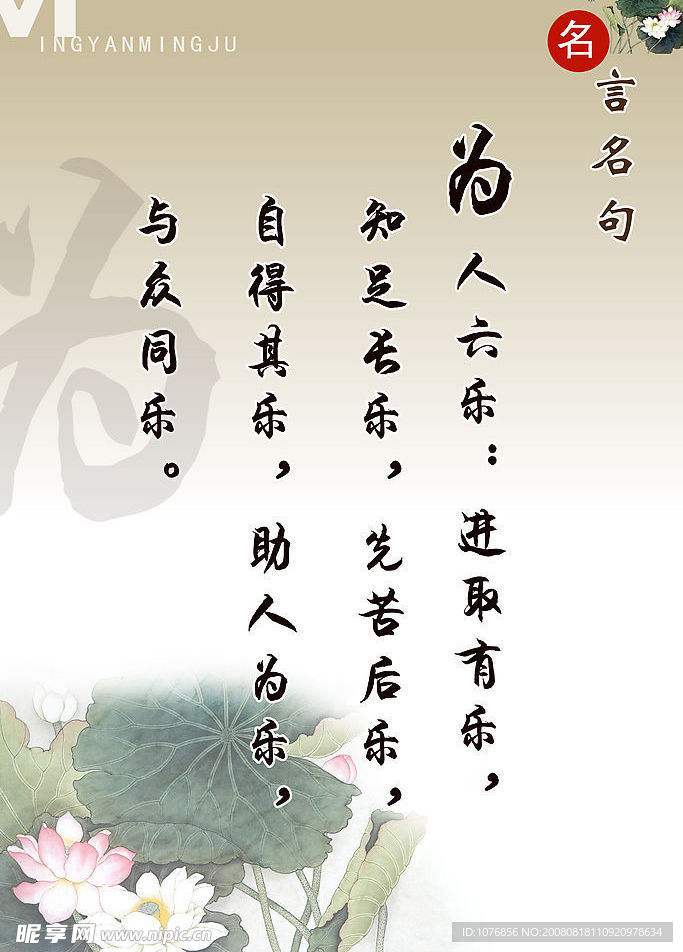 MINGYANMINGJU
名言名句
为人六乐：进取有乐，
知足长乐，先苦后乐，
自得其乐，助人为乐，
与众同乐。
为
昵享网 www.nipic.cn
ID:1076856 NO:20080818110920978634